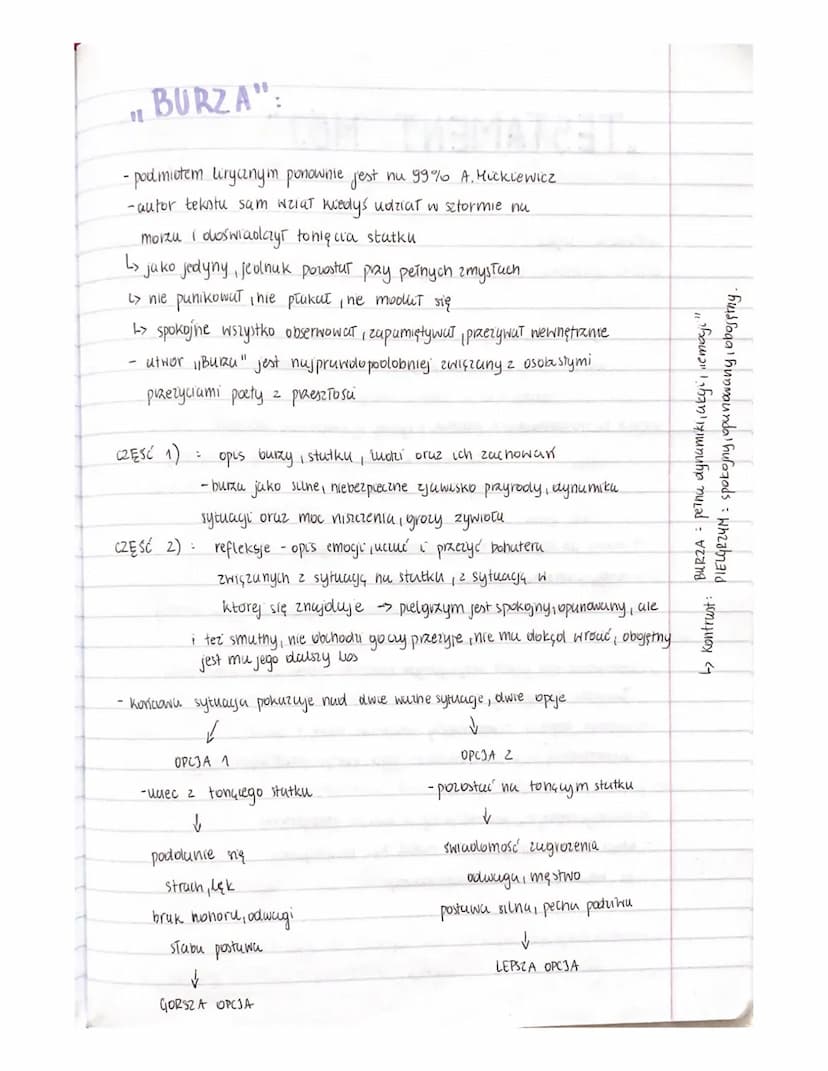 „BURZA":
- podmiotem lirycznym ponownie jest na 99% A. Mickiewicz
- autor tekstu sam wziął kiedyś udział w sztormie na
morzu i doświadczył tonięcia statku
↳ jako jedyny, jednak pozostał przy pełnych zmysłach
↳ nie panikował, nie płakał, nie modlił się
↳ spokojnie wszystko obserwował, zapamiętywał, przeżywał wewnętrznie
- utwór „Burza" jest najprawdopodobniej związany z osobistymi
przeżyciami poety z przeszłości
CZĘŚĆ 1) : opis burzy, statku, ludzi oraz ich zachowań
- burza jako silne, niebezpieczne zjawisko przyrody, dynamika
sytuacji oraz moc niszczenia, grozy żywiołu
CZĘŚĆ 2) : refleksje - opis emocji, uczuć i przeżyć bohatera
związanych z sytuacją na statku, z sytuacją w
której się znajduje → pielgrzym jest spokojny, opanowany, ale
i też smutny, nie obchodzi go czy przeżyje, nie ma dokąd wrócić, obojętny
jest mu jego dalszy los
- końcowa sytuacja pokazuje nad dwie ważne sytuacje, dwie opcje
↓ ↓
OPCJA 1 OPCJA 2
- uciec z tonącego statku - pozostać na tonącym statku
↓ ↓
poddanie się świadomość zagrożenia
strach, lęk odwaga, męstwo
brak honoru, odwagi postawa silna, pełna podziwu
słaba postawa ↓
↓ LEPSZA OPCJA
GORSZA OPCJA
↳ Kontrast: BURZA = pełna dynamiki, akcji, „emocji"
PIELGRZYM : spokojny, opanowany, obojętny.